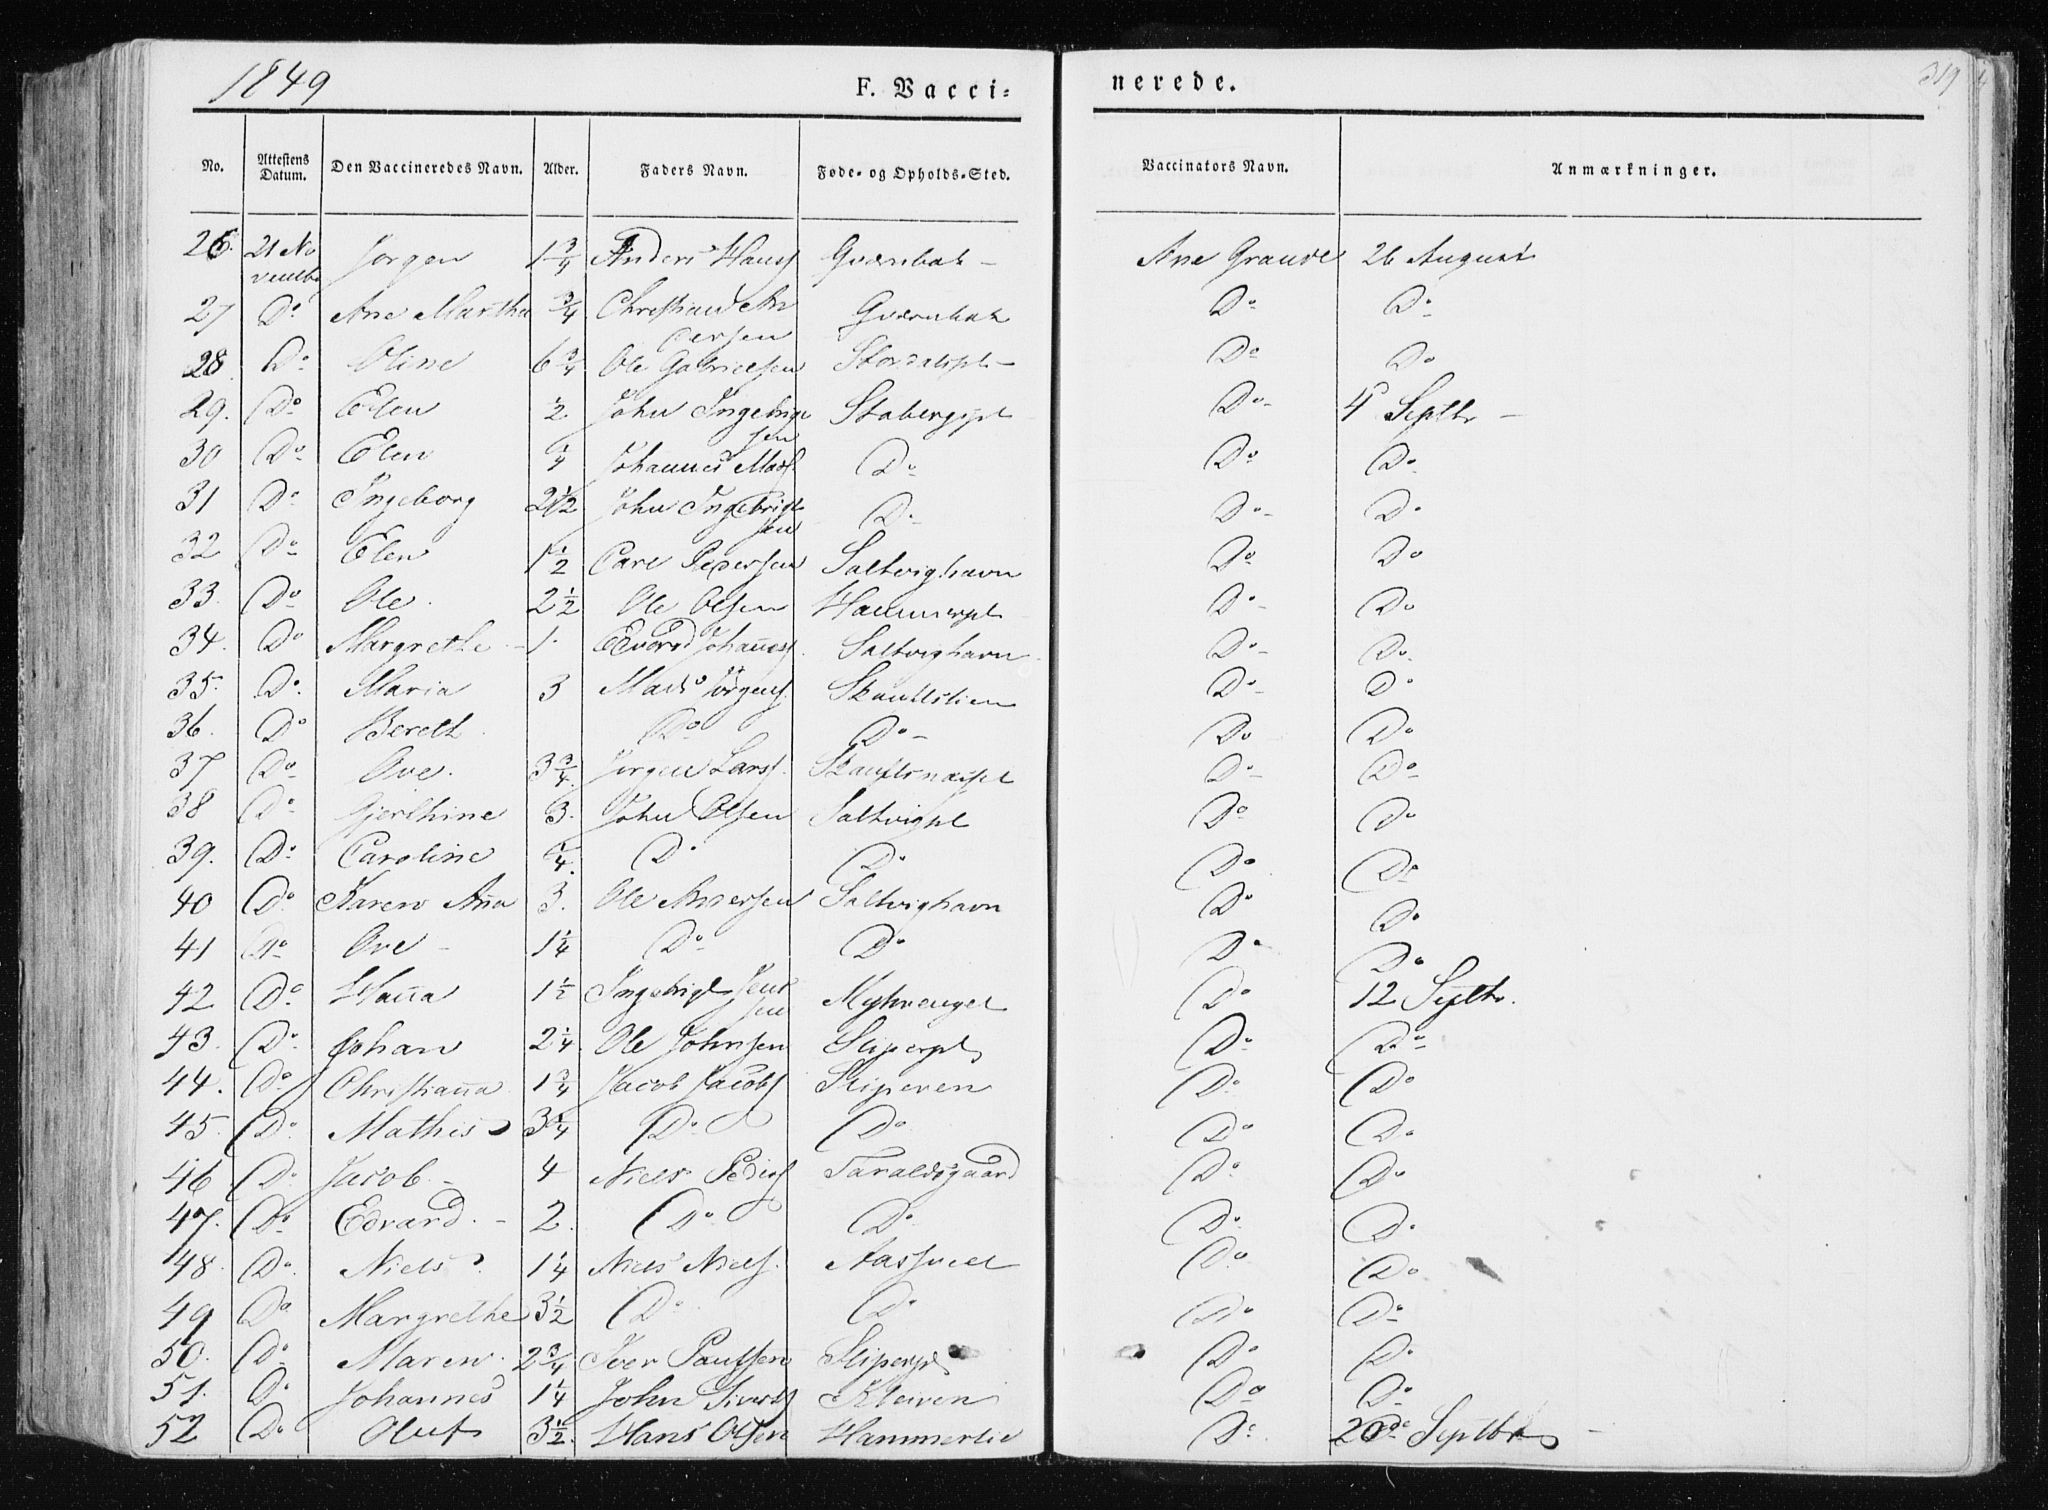 1849 F. Vacci= nerede. 319
No. Attestens Datum. Den Vaccineredes Navn. Alder. Faders Navn. Føde= og Opholds=Sted. Vaccinators Navn. Anmærkninger.
26. 21 No vembr Jørgen 1 3/4 Anders Hanss Qværnbak - Ane Grande 26 August
27 Do Ane Martha 3/4 Christian An dersen Qværnbak Do Do
28 Do Oline 6 3/4 Ole Gabrielsen Stordalspl - Do Do
29. Do Elen 1/2 John Ingebrigt sen Stabergspl Do 4 Septbr -
30 Do Elen 1/4 Johannes Mads Do Do Do
31 Do Ingeborg 2 1/2 John Ingebrigt sen Do Do Do
32 Do Elen 1 1/2 Carl Pedersen Saltvighavn Do Do
33. Do Ole. 2 1/2 Ole Olsen Hammerpl Do Do
34. Do Margrethe - 1. Edvard Johaness. Saltvighavn. Do Do
35. Do. Maria 3 Mads Jörgens. Do Do
36. Do Bereth Do Do - Do Do
37 Do Ove. 3 3/4 Jørgen Larss. Do Do
38 Do Gjerthine 3. John Olsen Saltvigpl Do Do
39. Do Caroline 1/4. Do Do Do Do
40 Do Karen Ana 3. Ole Andersen Saltvighavn Do Do
41 Do Ove - 1 1/4 Do Do Do Do
42 Do Hana 1 1/2 Ingebrigt sen Do 12 Septbr.
43. Do Johan 2 1/4 Ole Johnsen Sliperpl Do Do
44. Do Christiana 1 3/4 Jacob Jacobs Sliperen Do Do
45. Do Mathis 3 1/4 Do Do Do Do
46 Do Jacob - 4 Niels Peders Taraldsgaard Do Do
47. Do Edvard. - 2. Do Do Do Do
48. Do Niels. 1 1/4 Niels Niels. Do Do
49 Do Margrethe 3 1/2 Do Do Do Do
50. Do Maren. 2 3/4 Iver Paulsen Sliperpl Do Do
51. Do Johannes 1 1/4 John Siverts Kleiven Do Do
52 Do Oluf 3 1/2. Hans Olsen Hammerlie Do 20de Septbr -